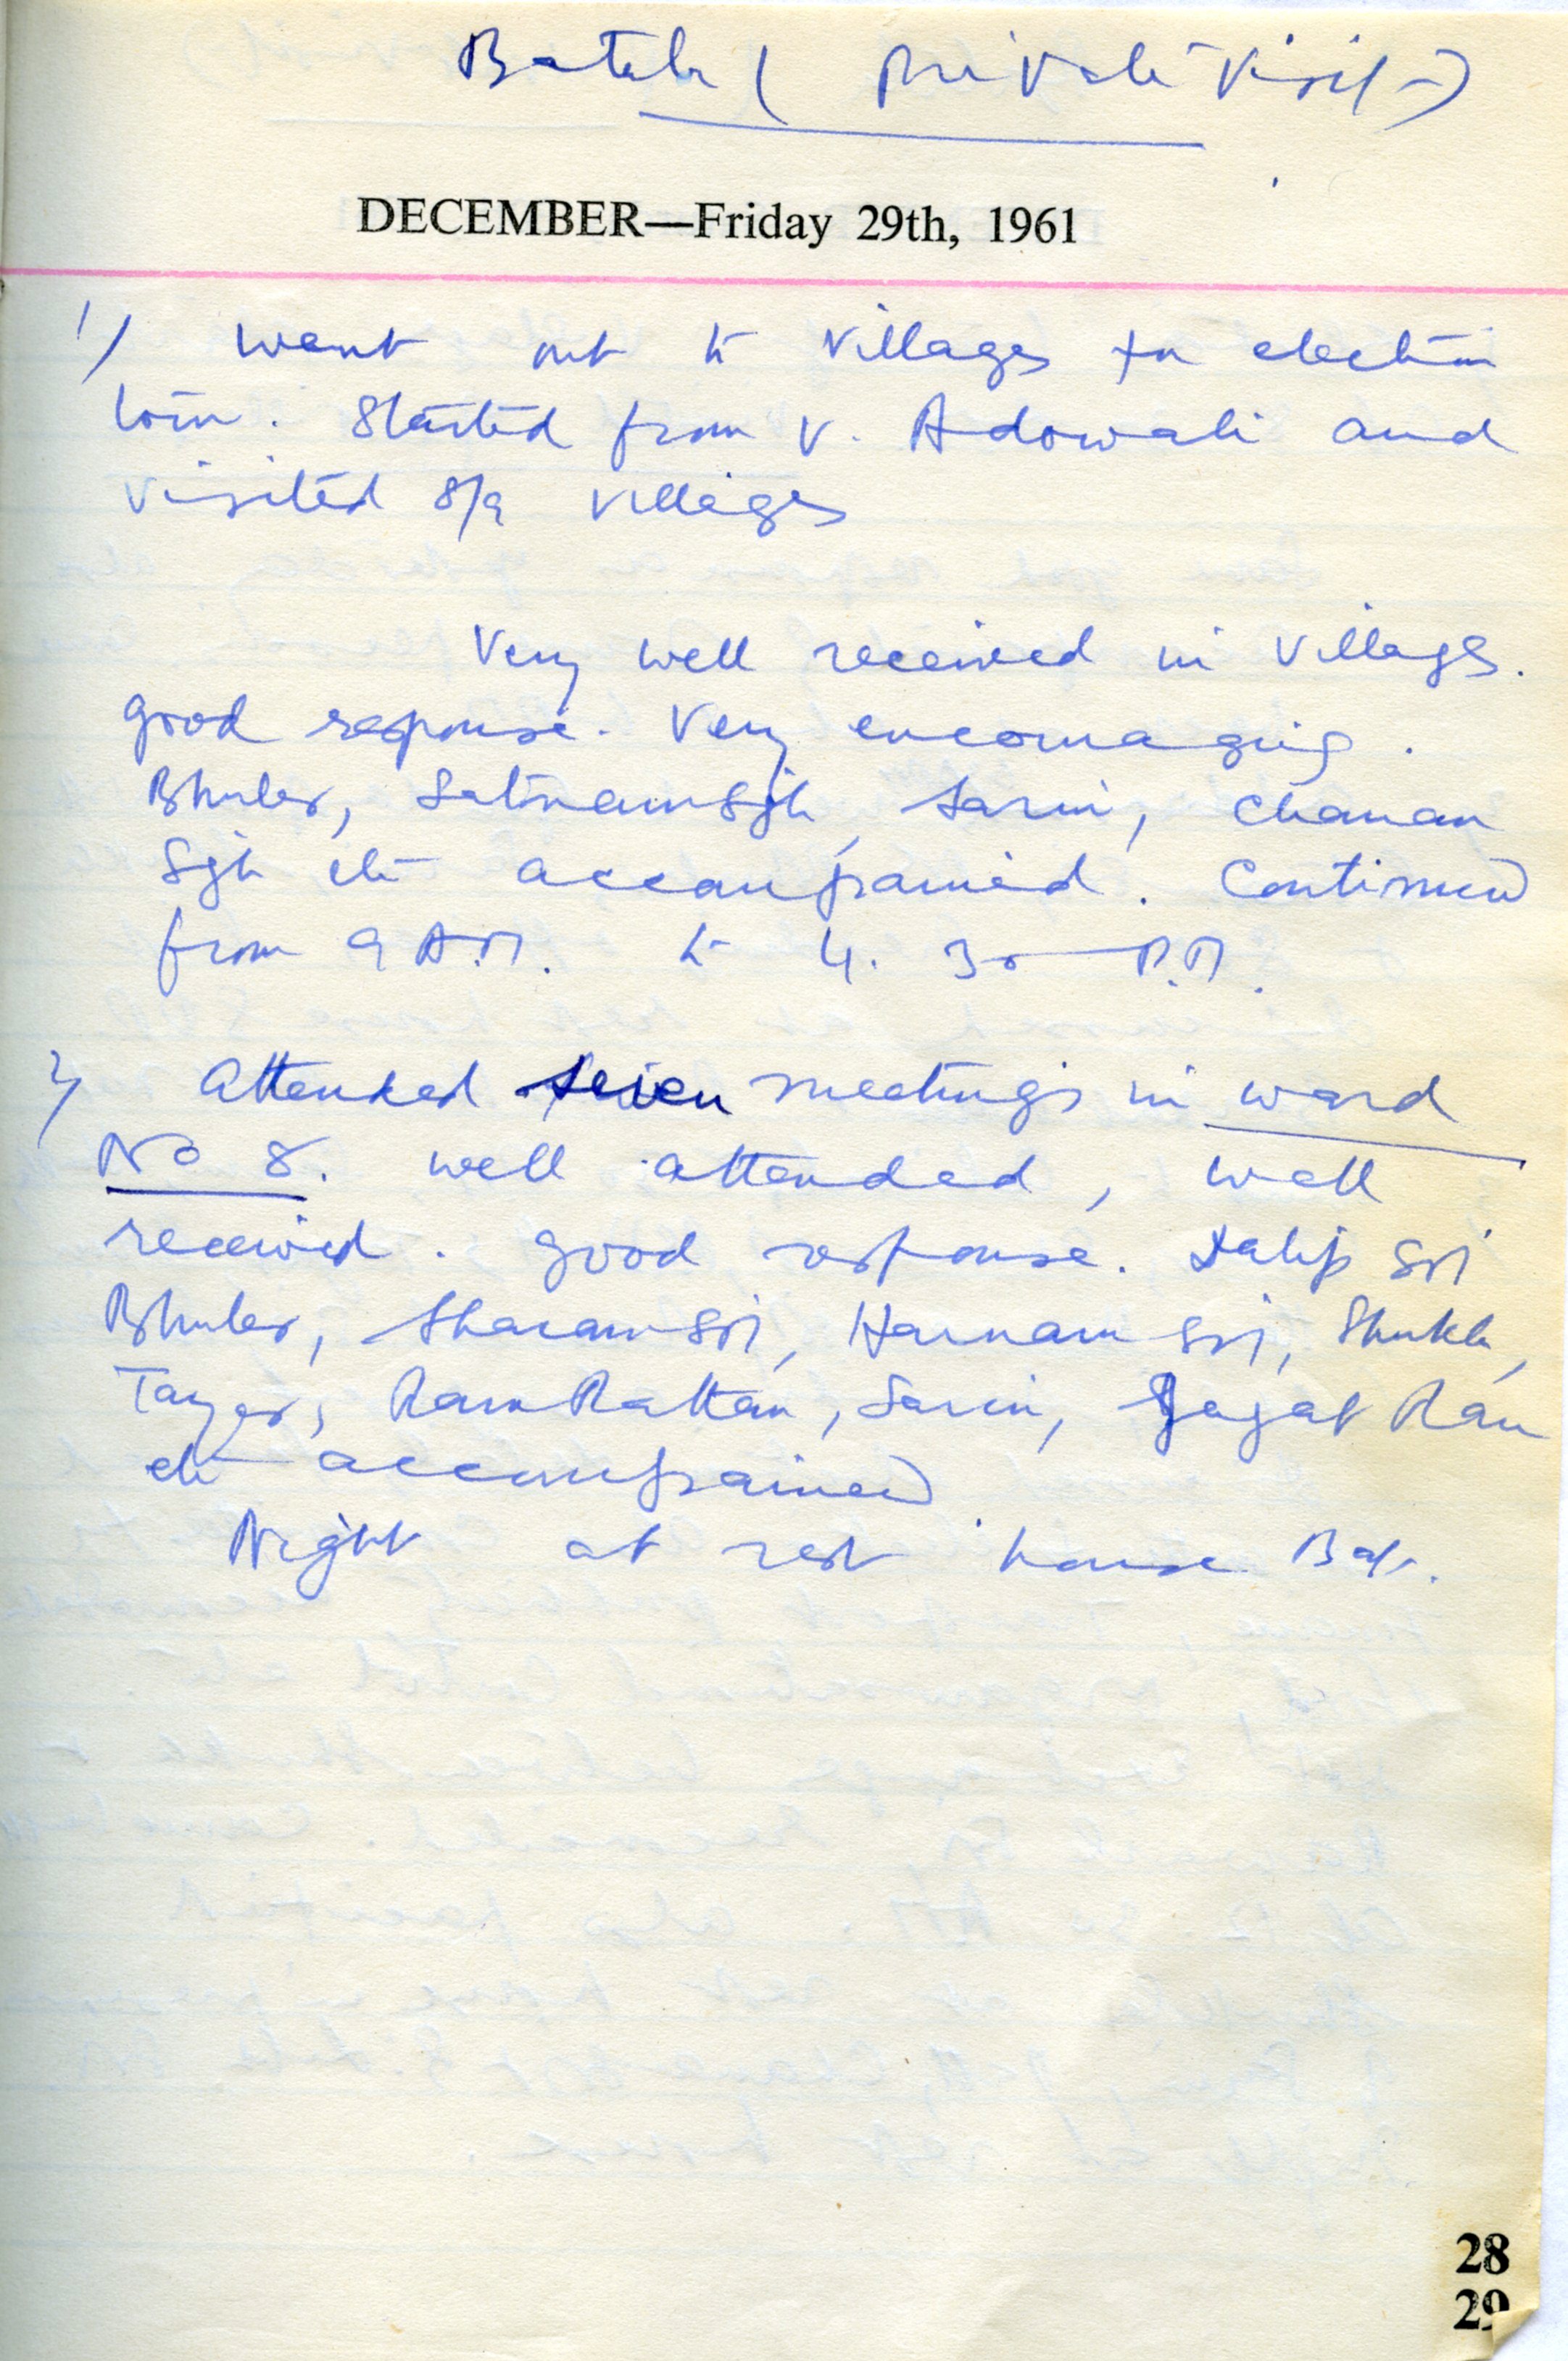 Batala (Private Visit)
DECEMBER—Friday 29th, 1961
1/ Went out to villages for election
tour. Started from V. Adowali and
visited 8/9 villages
Very well received in villages.
good response. Very encouraging.
Bhuler, Satnam Sgh, Sarin, Chanan
Sgh etc accompanied. Continued
from 9 A.M. to 4.30 P.M.
2/ Attended seven meetings in ward
No 8. well attended, well
received. good response. Dalip
Bhuler, Harnam Shukla,
Ram Rattan, Sarin, Jagat Ram
etc accompanied
Night at rest house Bat.
28
29